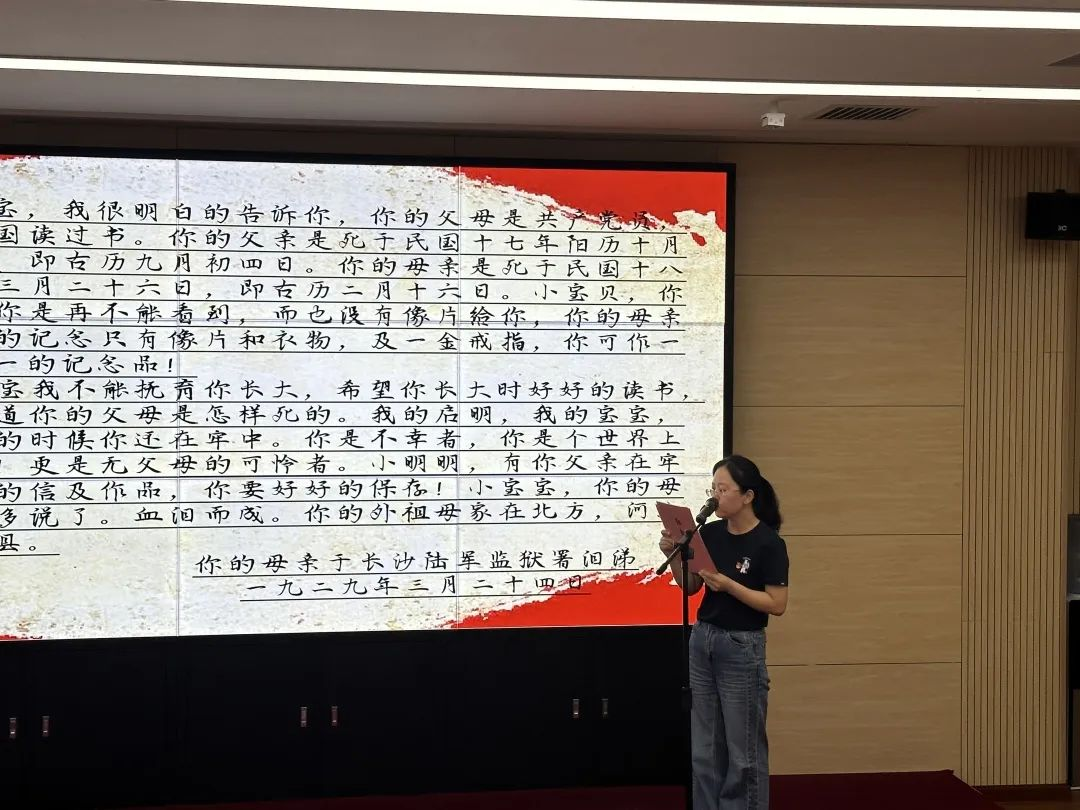 宝，我很明白的告诉你，你的父母是共产党员，
国读过书。你的父亲是死于民国十七年阳历十月
，即古历九月初四日。你的母亲是死于民国十八
三月二十六日，即古历二月十六日。小宝贝，你
你是再不能看到，而也没有像片给你，你的母亲
的记念只有像片和衣物，及一金戒指，你可作一
一的记念品！
宝我不能抚育你长大，希望你长大时好好的读书，
道你的父母是怎样死的。我的启明，我的宝宝，
的时候你还在牢中。你是不幸者，你是个世界上
！更是无父母的可怜者。小明明，有你父亲在牢
的信及作品，你要好好的保存！小宝宝，你的母
多说了。血泪而成。你的外祖母家在北方，河
县。
你的母亲于长沙陆军监狱署泪涕
一九二九年三月二十四日